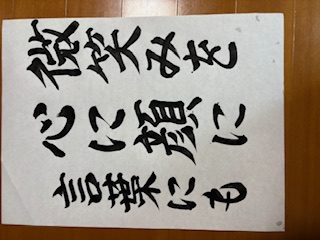 微笑みを
心に顔に
言葉にも